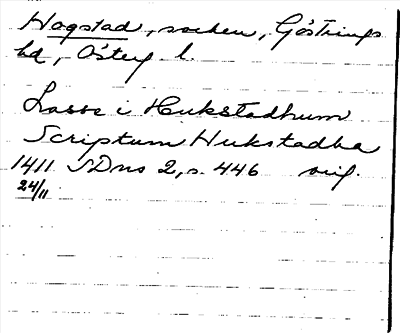 Hogstad, socken, Göstrings
hd, Österg l.
Lasse i Hukstadhum
Scriptum Hukstadha
1411 SDns 2, s. 446 orig.
24/11